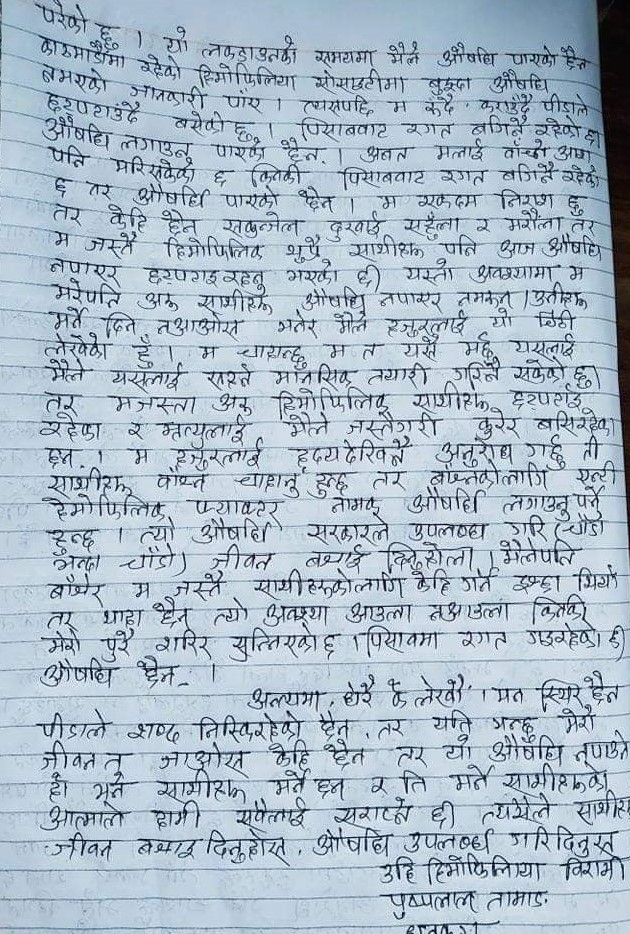 परेको छु । यो लकडाउनको समयमा मैले औषधि पाएको छैन
काठमाडौंमा रहेको हिमोफिलिया सोसाइटीमा बुझ्दा औषधि
नभएको जानकारी पाएँ । त्यसपछि म रुँदै कराउँदै पीडाले
छटपटाउँदै बसेको छु । पिसाबबाट रगत बगिनै रहेको छ।
औषधि लगाउन पाएको छैन । अबत मलाई बाँच्ने आश
पनि मरिसकेको छ किनकी पिसाबबाट रगत बगिनै रहेको
छ तर औषधि पाएको छैन । म एकदम निराश छु
तर केहि छैन सकुन्जेल दुखाई सहुँला र मरौला तर
म जस्तै हिमोफिलिक थुप्रै साथीहरू पनि आज औषधि
नपाएर छटपटाइरहनु भएको छ) यस्तो अवस्थामा म
मरेपनि अरू साथीहरू औषधि नपाएर नमरून । उनीहरू
मर्ने दिन नआओस भनेर मैले हजुरलाई यो चिठी
लेखेको हुँ । म चाहान्छु म त यस्तै मर्छु यसलाई
मैले यसलाई सहने मानसिक तयारी गरिनै सकेको छु।
तर मजस्ता अरू हिमोफिलिक साथीहरू छटपटाई
रहेका र मृत्युलाई मैले जस्तैगरी कुरेर बसिरहेका
छन् । म हजुरलाई हृदयदेखिनै अनुरोध गर्छु ती
साथीहरू बाँच्न चाहानु हुन्छ तर बाँच्नकोलागि एन्टी
हेमोफिलिक फ्याक्टर नामक औषधि लगाउनु पर्ने
हुन्छ । त्यो औषधि सरकारले उपलब्ध गरि (चाँडो
भन्दा चाँडो) जीवन बचाई दिनुहोला । मैलेपनि
बाँचेर म जस्तै साथीहरूकोलागि केहि गर्ने इच्छा थियो
तर थाहा छैन त्यो अवस्था आउला नआउला किनकी
मेरो पुरै शरिर सुन्निएको छ । पिसाबमा रगत गइरहेको छ)
औषधि छैन ।
अन्त्यमा, धेरै के लेखौं । मन स्थिर छैन
पीडाले शब्द निस्किरहेको छैन, तर यति भन्छु मेरो
जीवन त जाओस केहि छैन तर यो औषधि नपाउने
हो भने साथीहरू मर्ने छन र ति मर्ने साथीहरूको
आत्माले हामी सबैलाई सराप्ने छ) त्यसैले साथीहरू
जीवन बचाइदिनुहोस्, औषधि उपलब्ध गरिदिनुस
उहि हिमोफिलिया बिरामी
पुष्पलाल तामाङ